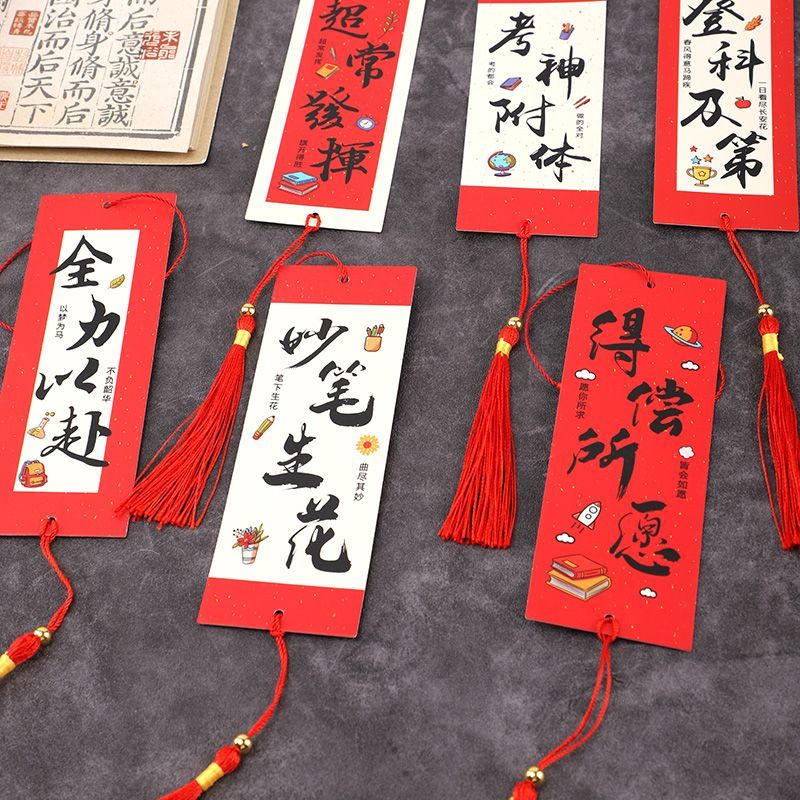 后而后意誠意誠
身脩身脩而后
國治而后天下
超常發揮
超常发挥
旗开得胜
考神附体
考的都会
做的全对
登科及第
春风得意马蹄疾
一日看尽长安花
全力以赴
以梦为马
不负韶华
妙笔生花
笔下生花
曲尽其妙
得偿所愿
愿你所求
皆会如愿